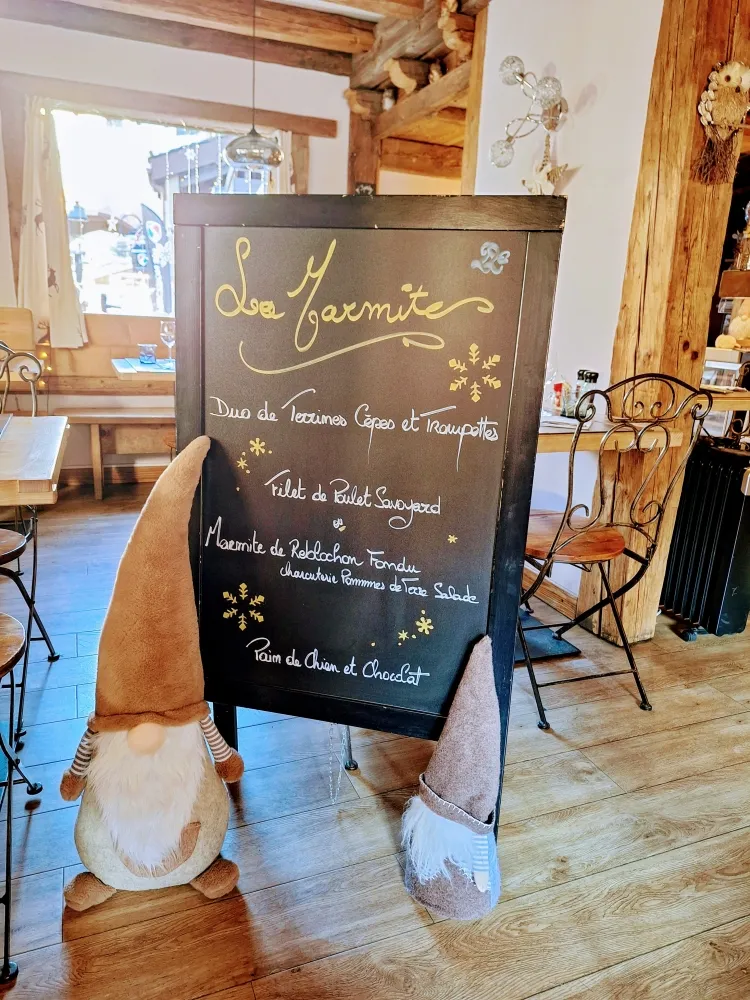 La Marmite
Duo de Terrines Cèpes et Trompettes
Filet de Poulet Savoyard
ou
Marmite de Reblochon Fondu
charcuterie Pommmes de Terre Salade
Pain de Chien et Chocolat